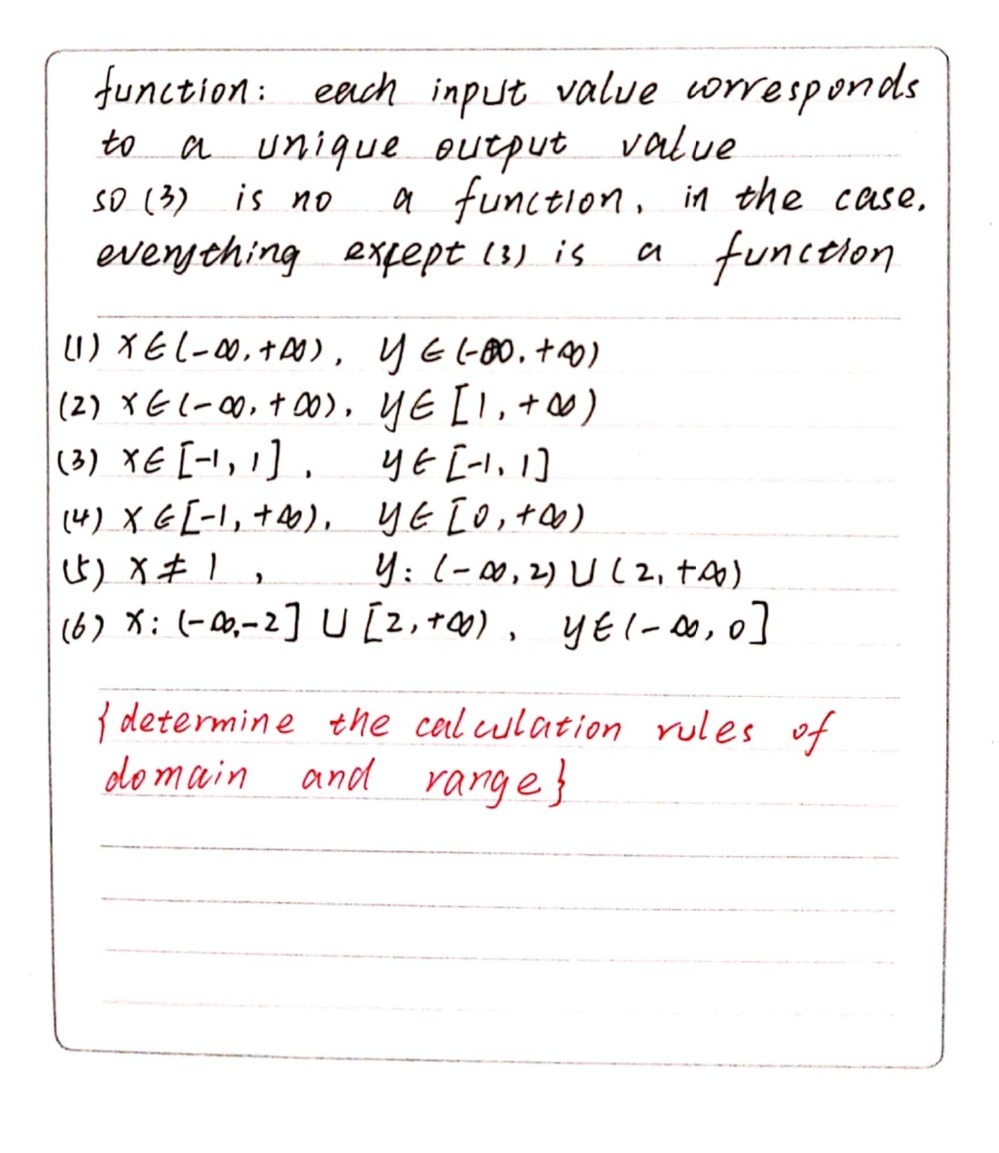 function: each input value corresponds
to a unique output value
so (3) is no a function, in the case.
everything except (3) is a function
(1) x∈(-∞,+∞), y∈(-∞,+∞)
(2) x∈(-∞,+∞), y∈[1,+∞)
(3) x∈[-1,1], y∈[-1,1]
(4) x∈[-1,+∞), y∈[0,+∞)
(5) x≠1, y:(-∞,2)∪(2,+∞)
(6) x:(-∞,-2]∪[2,+∞), y∈(-∞,0]
{determine the calculation rules of
domain and range}